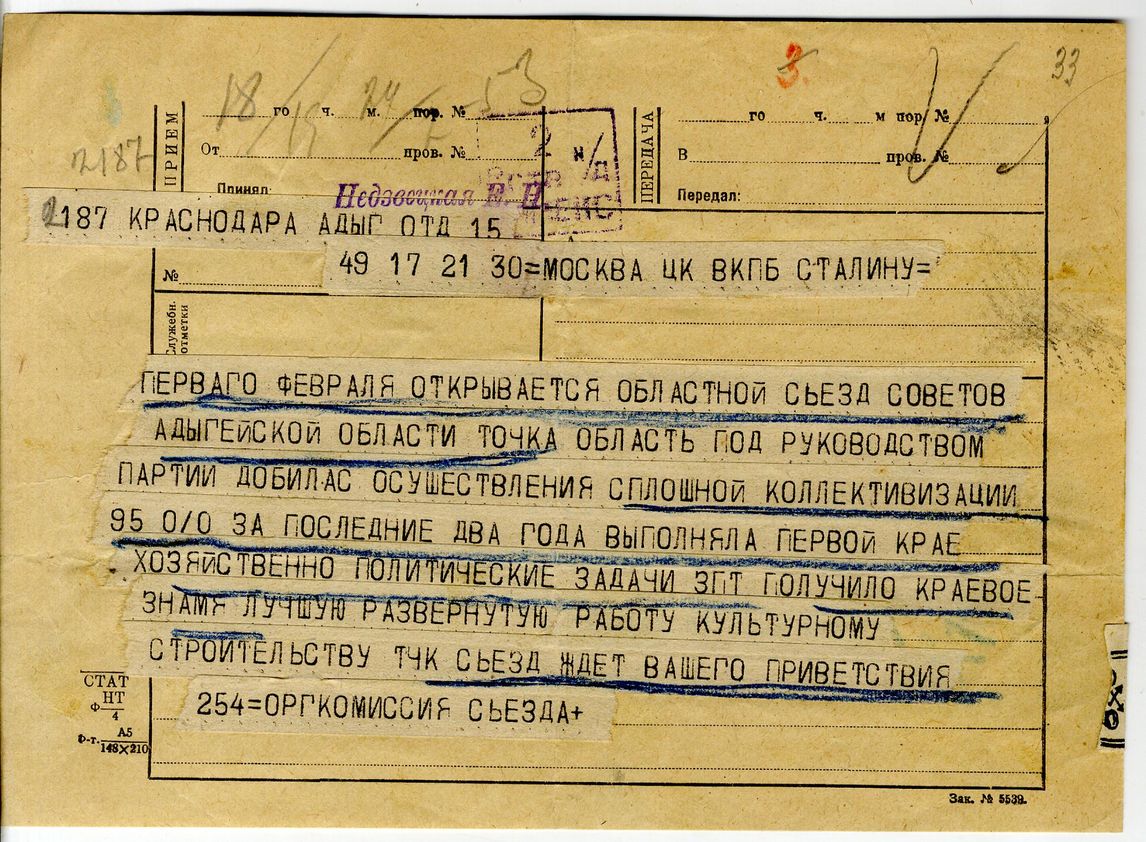 3.
33
18 го 15 ч. м. 24 пор. № 53
го ч. м пор. №
ПРИЕМ
ПЕРЕДАЧА
2187
От пров. №
2
В пров. №
Принял:
Передал:
Недзвецкая Е. Н.
2187 КРАСНОДАРА АДЫГ ОТД 15
49 17 21 30=МОСКВА ЦК ВКПБ СТАЛИНУ=
№
Служебн. отметки
ПЕРВАГО ФЕВРАЛЯ ОТКРЫВАЕТСЯ ОБЛАСТНОЙ СЬЕЗД СОВЕТОВ
АДЫГЕЙСКОЙ ОБЛАСТИ ТОЧКА ОБЛАСТЬ ПОД РУКОВОДСТВОМ
ПАРТИИ ДОБИЛАС ОСУШЕСТВЛЕНИЯ СПЛОШНОЙ КОЛЛЕКТИВИЗАЦИИ
95 0/0 ЗА ПОСЛЕДНИЕ ДВА ГОДА ВЫПОЛНЯЛА ПЕРВОЙ КРАЕ
ХОЗЯЙСТВЕННО ПОЛИТИЧЕСКИЕ ЗАДАЧИ ЗПТ ПОЛУЧИЛО КРАЕВОЕ
ЗНАМЯ ЛУЧШУЮ РАЗВЕРНУТУЮ РАБОТУ КУЛЬТУРНОМУ
СТРОИТЕЛЬСТВУ ТЧК СЬЕЗД ЖДЕТ ВАШЕГО ПРИВЕТСТВИЯ
254=ОРГКОМИССИЯ СЬЕЗДА+
СТАТ
Ф НТ/4
Ф-т. А5/148×210
Зак. № 5539.